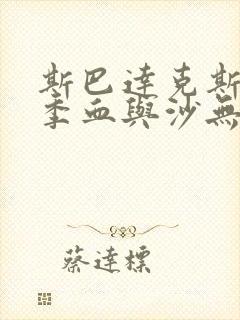 斯巴達克斯
季血與沙無
蔡達標